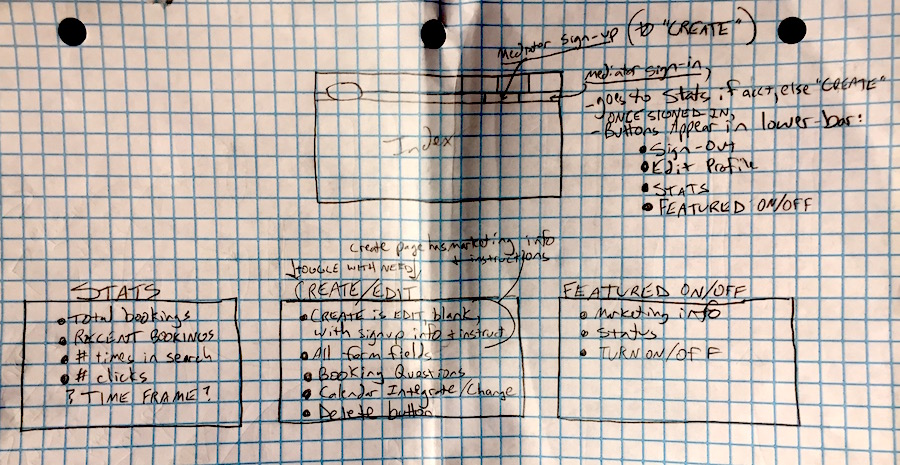 Mediator sign-up (to "CREATE")
mediator sign-in,
- goes to Stats if acct, else "CREATE"
ONCE SIGNED-IN,
- Buttons Appear in lower-bar:
• Sign-Out
• Edit Profile
• STATS
• FEATURED ON/OFF
Index
Create page has marketing info
+ instructions
TOGGLE WITH NEED
STATS
• Total bookings
• RECENT BOOKINGS
• # times in search
• # clicks
? TIME FRAME?
CREATE/EDIT
• CREATE is EDIT blank,
with signup info + instruct
• All form fields
• Booking Questions
• Calendar Integrate/Change
• Delete button
FEATURED ON/OFF
• Marketing info
• Status
• TURN ON/OFF